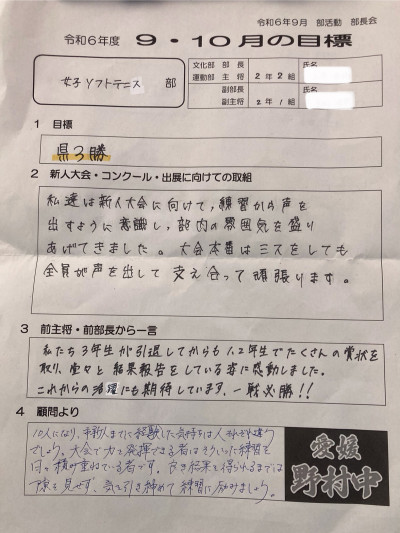 令和6年9月 部活動 部長会
令和6年度 9・10月の目標
女子ソフトテニス 部
文化部 部長
運動部 主将 2年2組 氏名
副部長
副主将 2年1組 氏名
1 目標
県3勝
2 新人大会・コンクール・出展に向けての取組
私達は新人大会に向けて、練習から声を
出すように意識し、部内の雰囲気を盛り
あげてきました。大会本番はミスをしても
全員が声を出して支え合って頑張ります。
3 前主将・前部長から一言
私たち3年生が引退してからも1、2年生でたくさんの賞状を
取り、堂々と結果報告をしている姿に感動しました。
これからの活躍にも期待しています。一戦必勝!!
4 顧問より
10人になり、
でしょう。大会で力を発揮できる者はそういった練習を
日々積み重ねている者です。良き結果を得られるまでは
を見せず、気を引き締めて練習に励みましょう。
愛媛
野村中